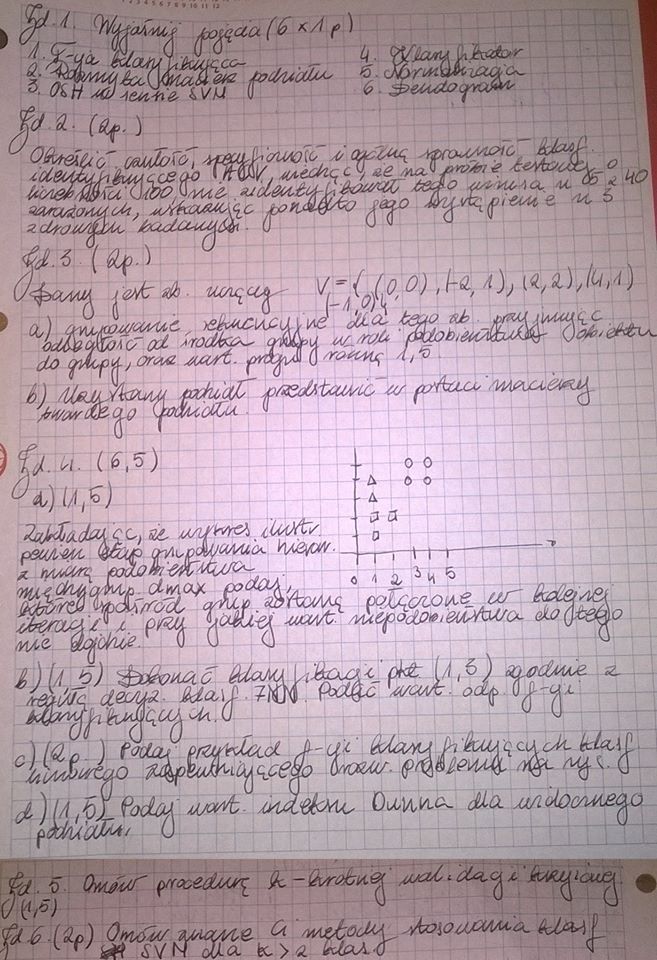 Zd. 1. Wyjaśnij pojęcia (6 x 1p)
1. F-ya klasyfikująca
2. Rozmyta macierz podziału
3. OSH w sensie SVM
4. Klasyfikator
5. Normalizacja
6. Dendogram
Zd. 2. (2p.)
Określić czułość, specyficzność i ogólną sprawność klasf.
identyfikującego HCV, wiedząc, że na próbie testowej
liczebności 100 nie zidentyfikował tego wirusa u 2 40
zarażonych, wskazując ponadto jego wystąpienie u 3
zdrowych badanych.
Zd. 3. (2p.)
Dany jest zb. uczący V = { (0,0), (-2,1), (2,2), (4,1)
(-1,0) }
a) grupowanie sekwencyjne dla tego zb. przyjmując
odległość od środka grupy w roli podobieństwa obiektu
do grupy, oraz wart. progu równą 1,5
b) Uzyskany podział przedstawić w postaci macierzy
twardego podziału.
Zd. 4. (6,5)
a) (1,5)
Zakładając, że wykres ilustr.
pewien etap grupowania hierar.
z miarą podobieństwa
międzygrup. dmax podaj,
które spośród grup zostaną połączone w kolejnej
iteracji i przy jakiej wart. niepodobieństwa do tego
nie dojdzie.
0 1 2 3 4 5
b) (1,5) Dokonać klasyfikacji pkt (1,3) zgodnie z
regułą decyz. klasf. 7NN. Podać wart. odp. f-yi
klasyfikujących.
c) (2p.) Podaj przykład f-yi klasyfikujących klasf
liniowego zapewniającego rozw. problemu na rys.
d) (1,5) Podaj wart. indeksu Dunna dla widocznego
podziału.
Zd. 5. Omów procedurę k-krotnej walidacji krzyżowej.
(1,5)
Zd 6. (2p) Omów znane Ci metody stosowania klasf
SVM dla k > 2 klas